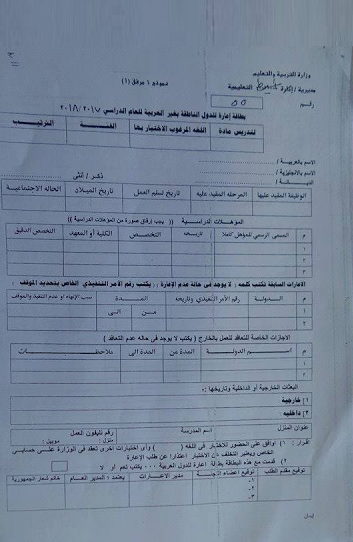 وزارة التربية والتعليم
نموذج ١ مرفق (١)
مديرية / إدارة التعليمية
قسم
بطاقة إعارة للدول الناطقة بغير العربية للعام الدراسي ٢٠١٨/٢٠١٧
لتدريس مادة اللغه المرغوب الاختبار بها الفئة الترتيب
الاسم بالعربية :
الاسم بالإنجليزية :
الديانة : ذكر / أنثى
الوظيفة المقيد عليها المرحله المقيد عليه تاريخ تسلم العمل تاريخ الميلاد الحاله الاجتماعية
المؤهلات الدراسية (( يجب إرفاق صورة من المؤهلات الدراسية ))
م المسمى الرسمي للمؤهل كاملا تاريخه التخصص الكلية أو المعهد التخصص الدقيق
١
٢
٣
الاعارات السابقة تكتب كلمه : لا يوجد في حالة عدم الإعارة ، يكتب رقم الأمر التنفيذي الخاص بتحديد الموقف :
م الدولة رقم الأمر التنفيذي وتاريخه المدة سبب الإنهاء او عدم التنفيذ والموقف
من الى
١
٢
الاجازات الخاصة للتعاقد للعمل بالخارج ( يكتب لا يوجد في حاله عدم التعاقد )
م اسم الدولة المدة من المدة الى ملاحظات
١
٢
البعثات الخارجية أو الداخلية وتاريخها :
١) خارجية
٢) داخليه
عنوان المنزل اسم المدرسة رقم تليفون العمل
منزل : موبيل :
إقرار : ١) أوافق على الحضور للاختبار في اللغه ( ) وأى اختبارات اخرى تعقد في الوزارة على حسابي
الخاص ويعتبر التخلف عن الاختبار اعتذارا عن طلب الإعارة
٢) قدمت مع هذه البطاقة بطاقة إعارة للدول العربية ... يكتب نعم أو لا
توقيع مقدم الطلب توقيع اعضاء اللجنة مدير الاعارات يعتمد ، المدير العام خاتم شعار الجمهورية
١-
٢-
٣-